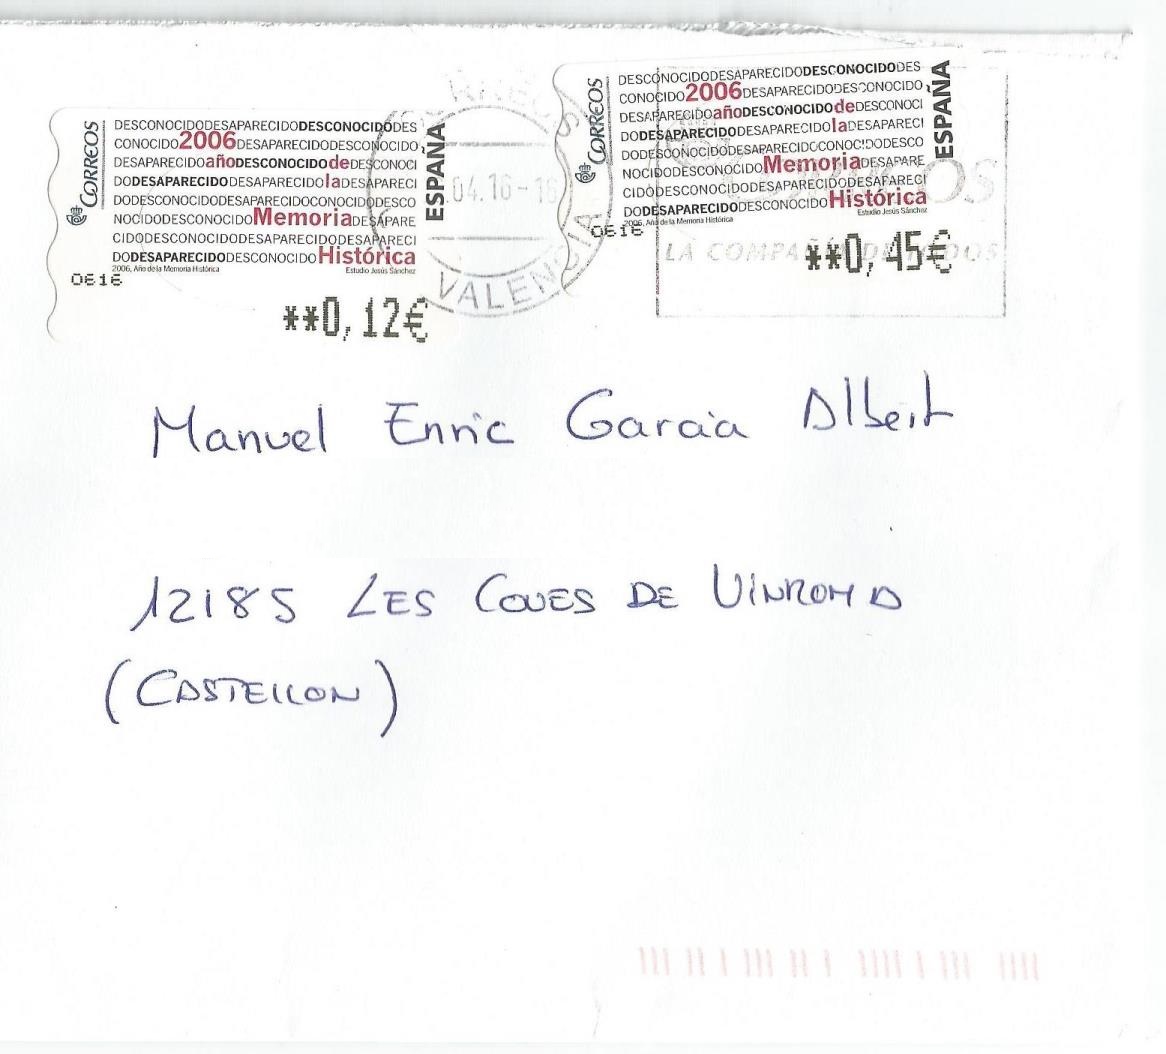 CORREOS
DESCONOCIDODESAPARECIDODESCONOCIDODES
CONOCIDO2006DESAPARECIDODESCONOCIDO
DESAPARECIDOañoDESCONOCIDOdeDESCONOCI
DODESAPARECIDODESAPARECIDOlaDESAPARECI
DODESCONOCIDODESAPARECIDOCONOCIDODESCO
NOCIDODESCONOCIDOMemoriaDESAPARE
CIDODESCONOCIDODESAPARECIDODESAPARECI
DODESAPARECIDODESCONOCIDOHistórica
2006, Año de la Memoria Histórica Estudio Jesús Sánchez
ESPAÑA
0616
**0,12€
CORREOS
04.16-16
VALENCIA
CORREOS
DESCONOCIDODESAPARECIDODESCONOCIDODES
CONOCIDO2006DESAPARECIDODESCONOCIDO
DESAPARECIDOañoDESCONOCIDOdeDESCONOCI
DODESAPARECIDODESAPARECIDOlaDESAPARECI
DODESCONOCIDODESAPARECIDOCONOCIDODESCO
NOCIDODESCONOCIDOMemoriaDESAPARE
CIDODESCONOCIDODESAPARECIDODESAPARECI
DODESAPARECIDODESCONOCIDOHistórica
2006, Año de la Memoria Histórica Estudio Jesús Sánchez
ESPAÑA
0616
**0,45€
CORREOS
LA COMPAÑÍA DE TODOS
Manuel Enric Garcia Albert
12185 LES COVES DE VINROMA
(CASTELLON)